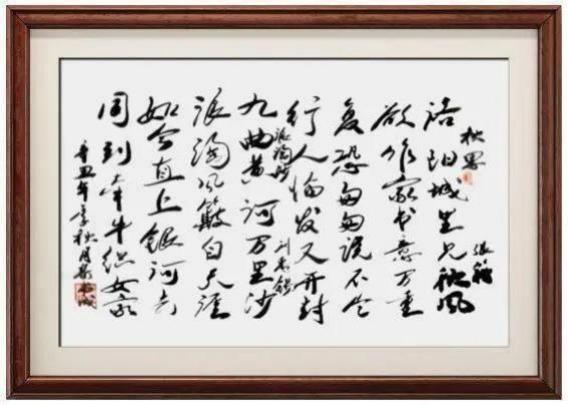 秋思
张籍
洛阳城里见秋风
欲作家书意万重
复恐匆匆说不尽
行人临发又开封
浪淘沙
刘禹锡
九曲黄河万里沙
浪淘风簸自天涯
如今直上银河去
同到牵牛织女家
辛丑年李秋